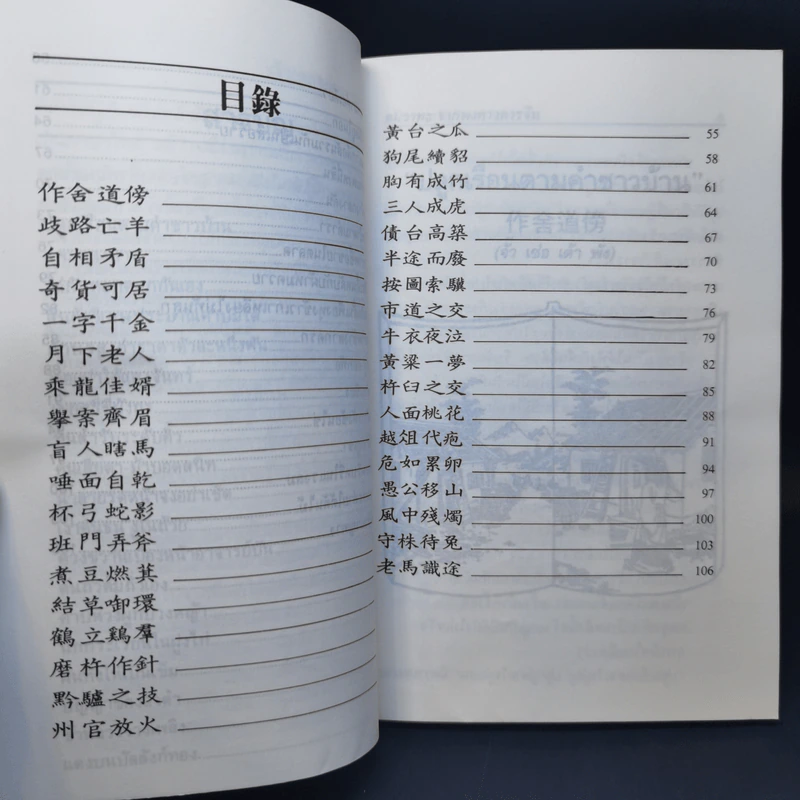 目錄
作舍道傍
歧路亡羊
自相矛盾
奇貨可居
一字千金
月下老人
乘龍佳婿
舉案齊眉
盲人瞎馬
唾面自乾
杯弓蛇影
班門弄斧
煮豆燃萁
結草啣環
鶴立鷄羣
磨杵作針
黔驢之技
州官放火
黃台之瓜 55
狗尾續貂 58
胸有成竹 61
三人成虎 64
債台高築 67
半途而廢 70
按圖索驥 73
市道之交 76
牛衣夜泣 79
黃粱一夢 82
杵臼之交 85
人面桃花 88
越俎代庖 91
危如累卵 94
愚公移山 97
風中殘燭 100
守株待兔 103
老馬識途 106